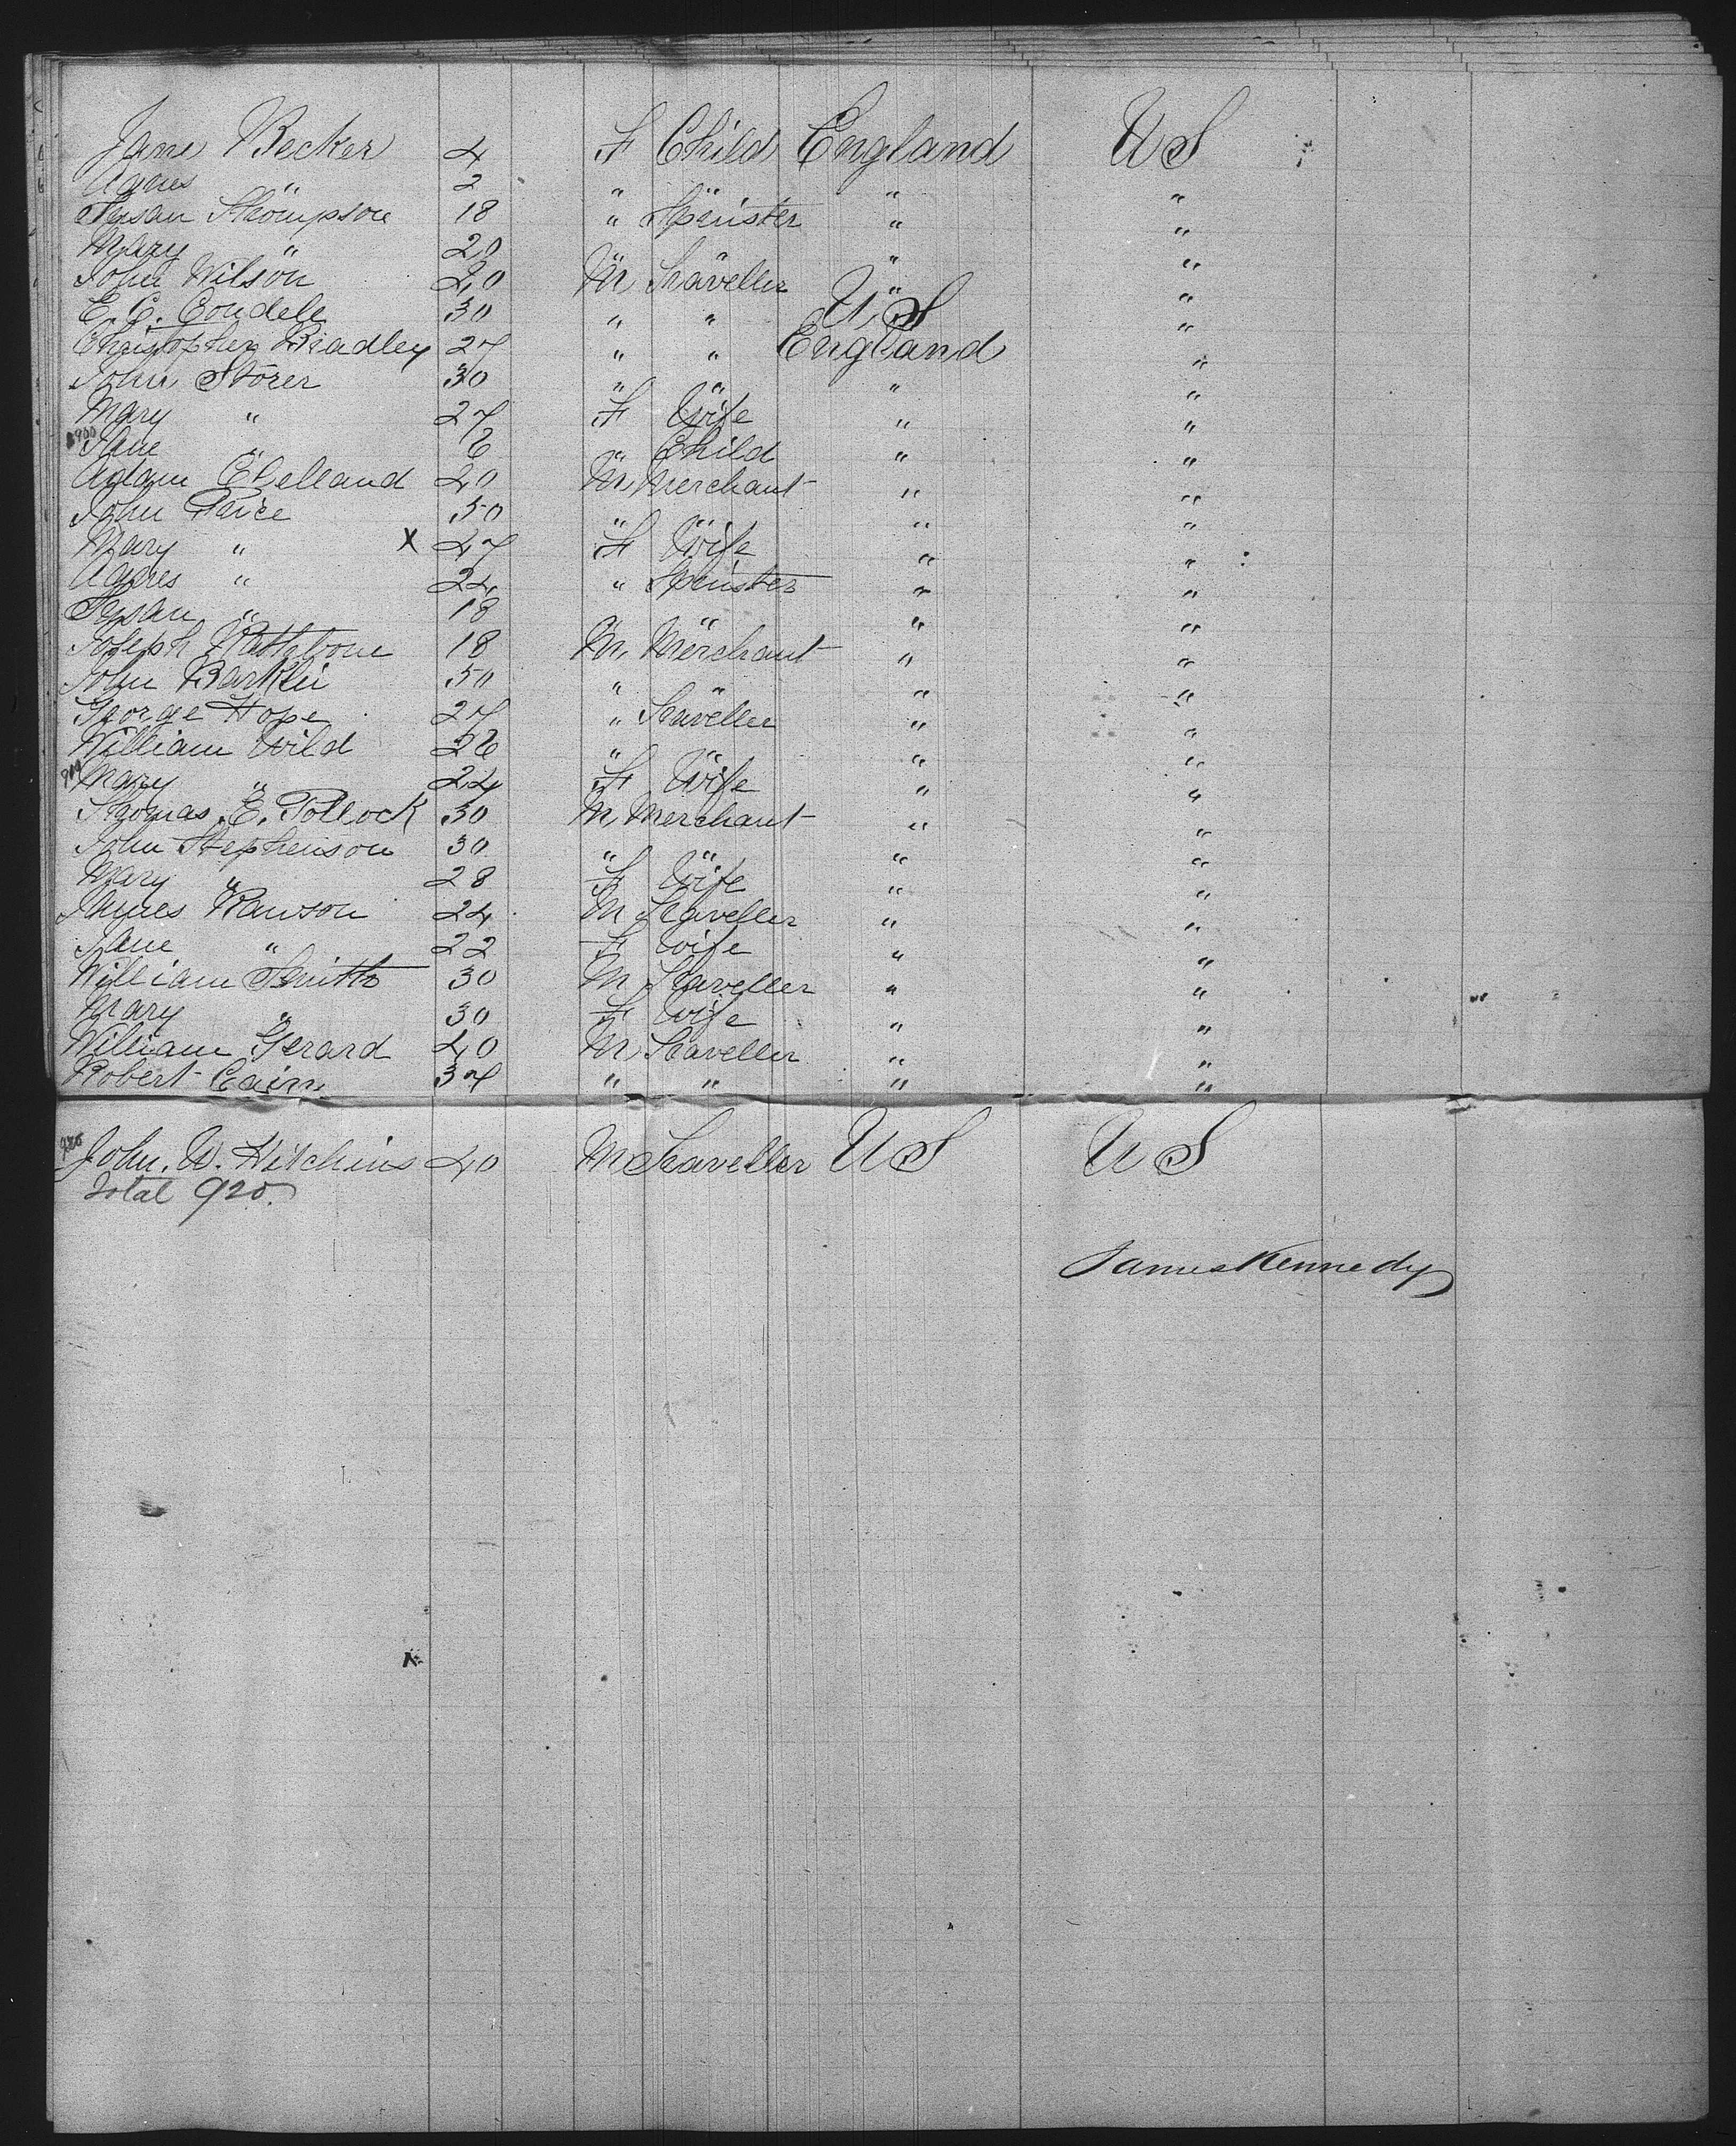 Jane Becker 4 F Child England U S
Agnes " 2 " " " "
Susan Thompson 18 " Spinster " "
Mary " 20 " " " "
John Wilson 20 M Traveller " "
E. C. Condell 30 " " U, S "
Christopher Bradley 27 " " England "
John Storer 30 " " " "
Mary " 27 F Wife " "
900 Jane " 6 " Child " "
Adam Clelland 20 M Merchant " "
John Price 50 " " " "
Mary " X 47 F Wife " "
Agnes " 24 " Spinster " "
Susan " 18 " " " "
Joseph Rathbone 18 M Merchant " "
John 50 " " " "
George Hope 27 " Traveller " "
William Wild 26 " " " "
Mary " 24 F Wife " "
Thomas. E. Pollock 30 M Merchant " "
John Stephenson 30 " " " "
Mary " 28 F Wife " "
James Rawson 24 M Traveller " "
Jane " 22 F Wife " "
William Smith 30 M Traveller " "
Mary " 30 F Wife " "
William Gerard 40 M Traveller " "
Robert Cain 37 " " " "
John. W. Hitchins 40 M Traveller U S U S
Total 920.
James Kennedy